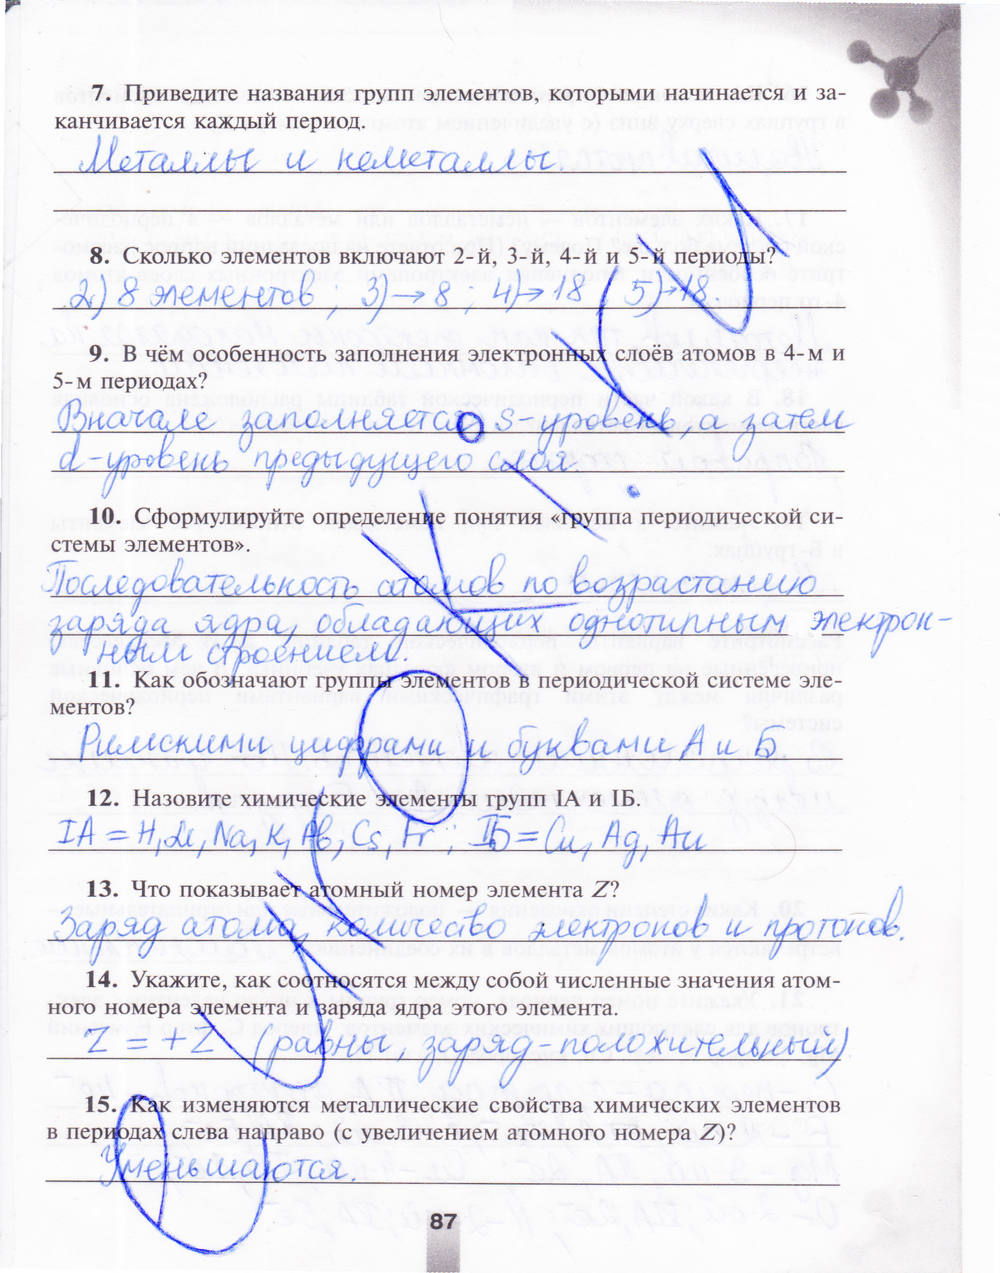 7. Приведите названия групп элементов, которыми начинается и за-
канчивается каждый период.
Металлы и неметаллы.
8. Сколько элементов включают 2-й, 3-й, 4-й и 5-й периоды?
2) 8 элементов ; 3)→8 ; 4)→18 ; 5)→18
9. В чём особенность заполнения электронных слоёв атомов в 4-м и
5-м периодах?
Вначале заполняется s-уровень, а затем
d-уровень предыдущего слоя.
10. Сформулируйте определение понятия «группа периодической си-
стемы элементов».
Последовательность атомов по возрастанию
заряда ядра, обладающих однотипным электрон-
ным строением.
11. Как обозначают группы элементов в периодической системе эле-
ментов?
Римскими цифрами и буквами А и Б
12. Назовите химические элементы групп IА и IБ.
IА = H, Li, Na, K, Rb, Cs, Fr ; IБ = Cu, Ag, Au
13. Что показывает атомный номер элемента Z?
Заряд атома, количество электронов и протонов.
14. Укажите, как соотносятся между собой численные значения атом-
ного номера элемента и заряда ядра этого элемента.
Z = +Z (равны, заряд-положительный)
15. Как изменяются металлические свойства химических элементов
в периодах слева направо (с увеличением атомного номера Z)?
Уменьшаются.
87